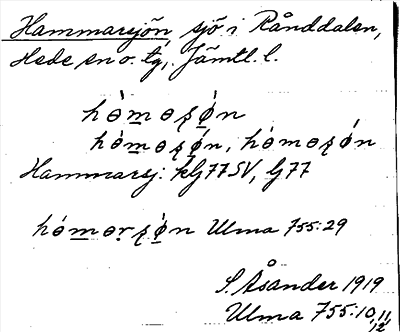 Hammarsjön, sjö i Rånddalen,
Hede sn o. tg, Jämtl. l.
hòmoʂø̀n
hómoʂøn, hómoʂón
Hammarsj: kG77SV, G77
hómorʂøn Ulma 755:29
S. Åsander 1919
Ulma 755:10, 11,
12